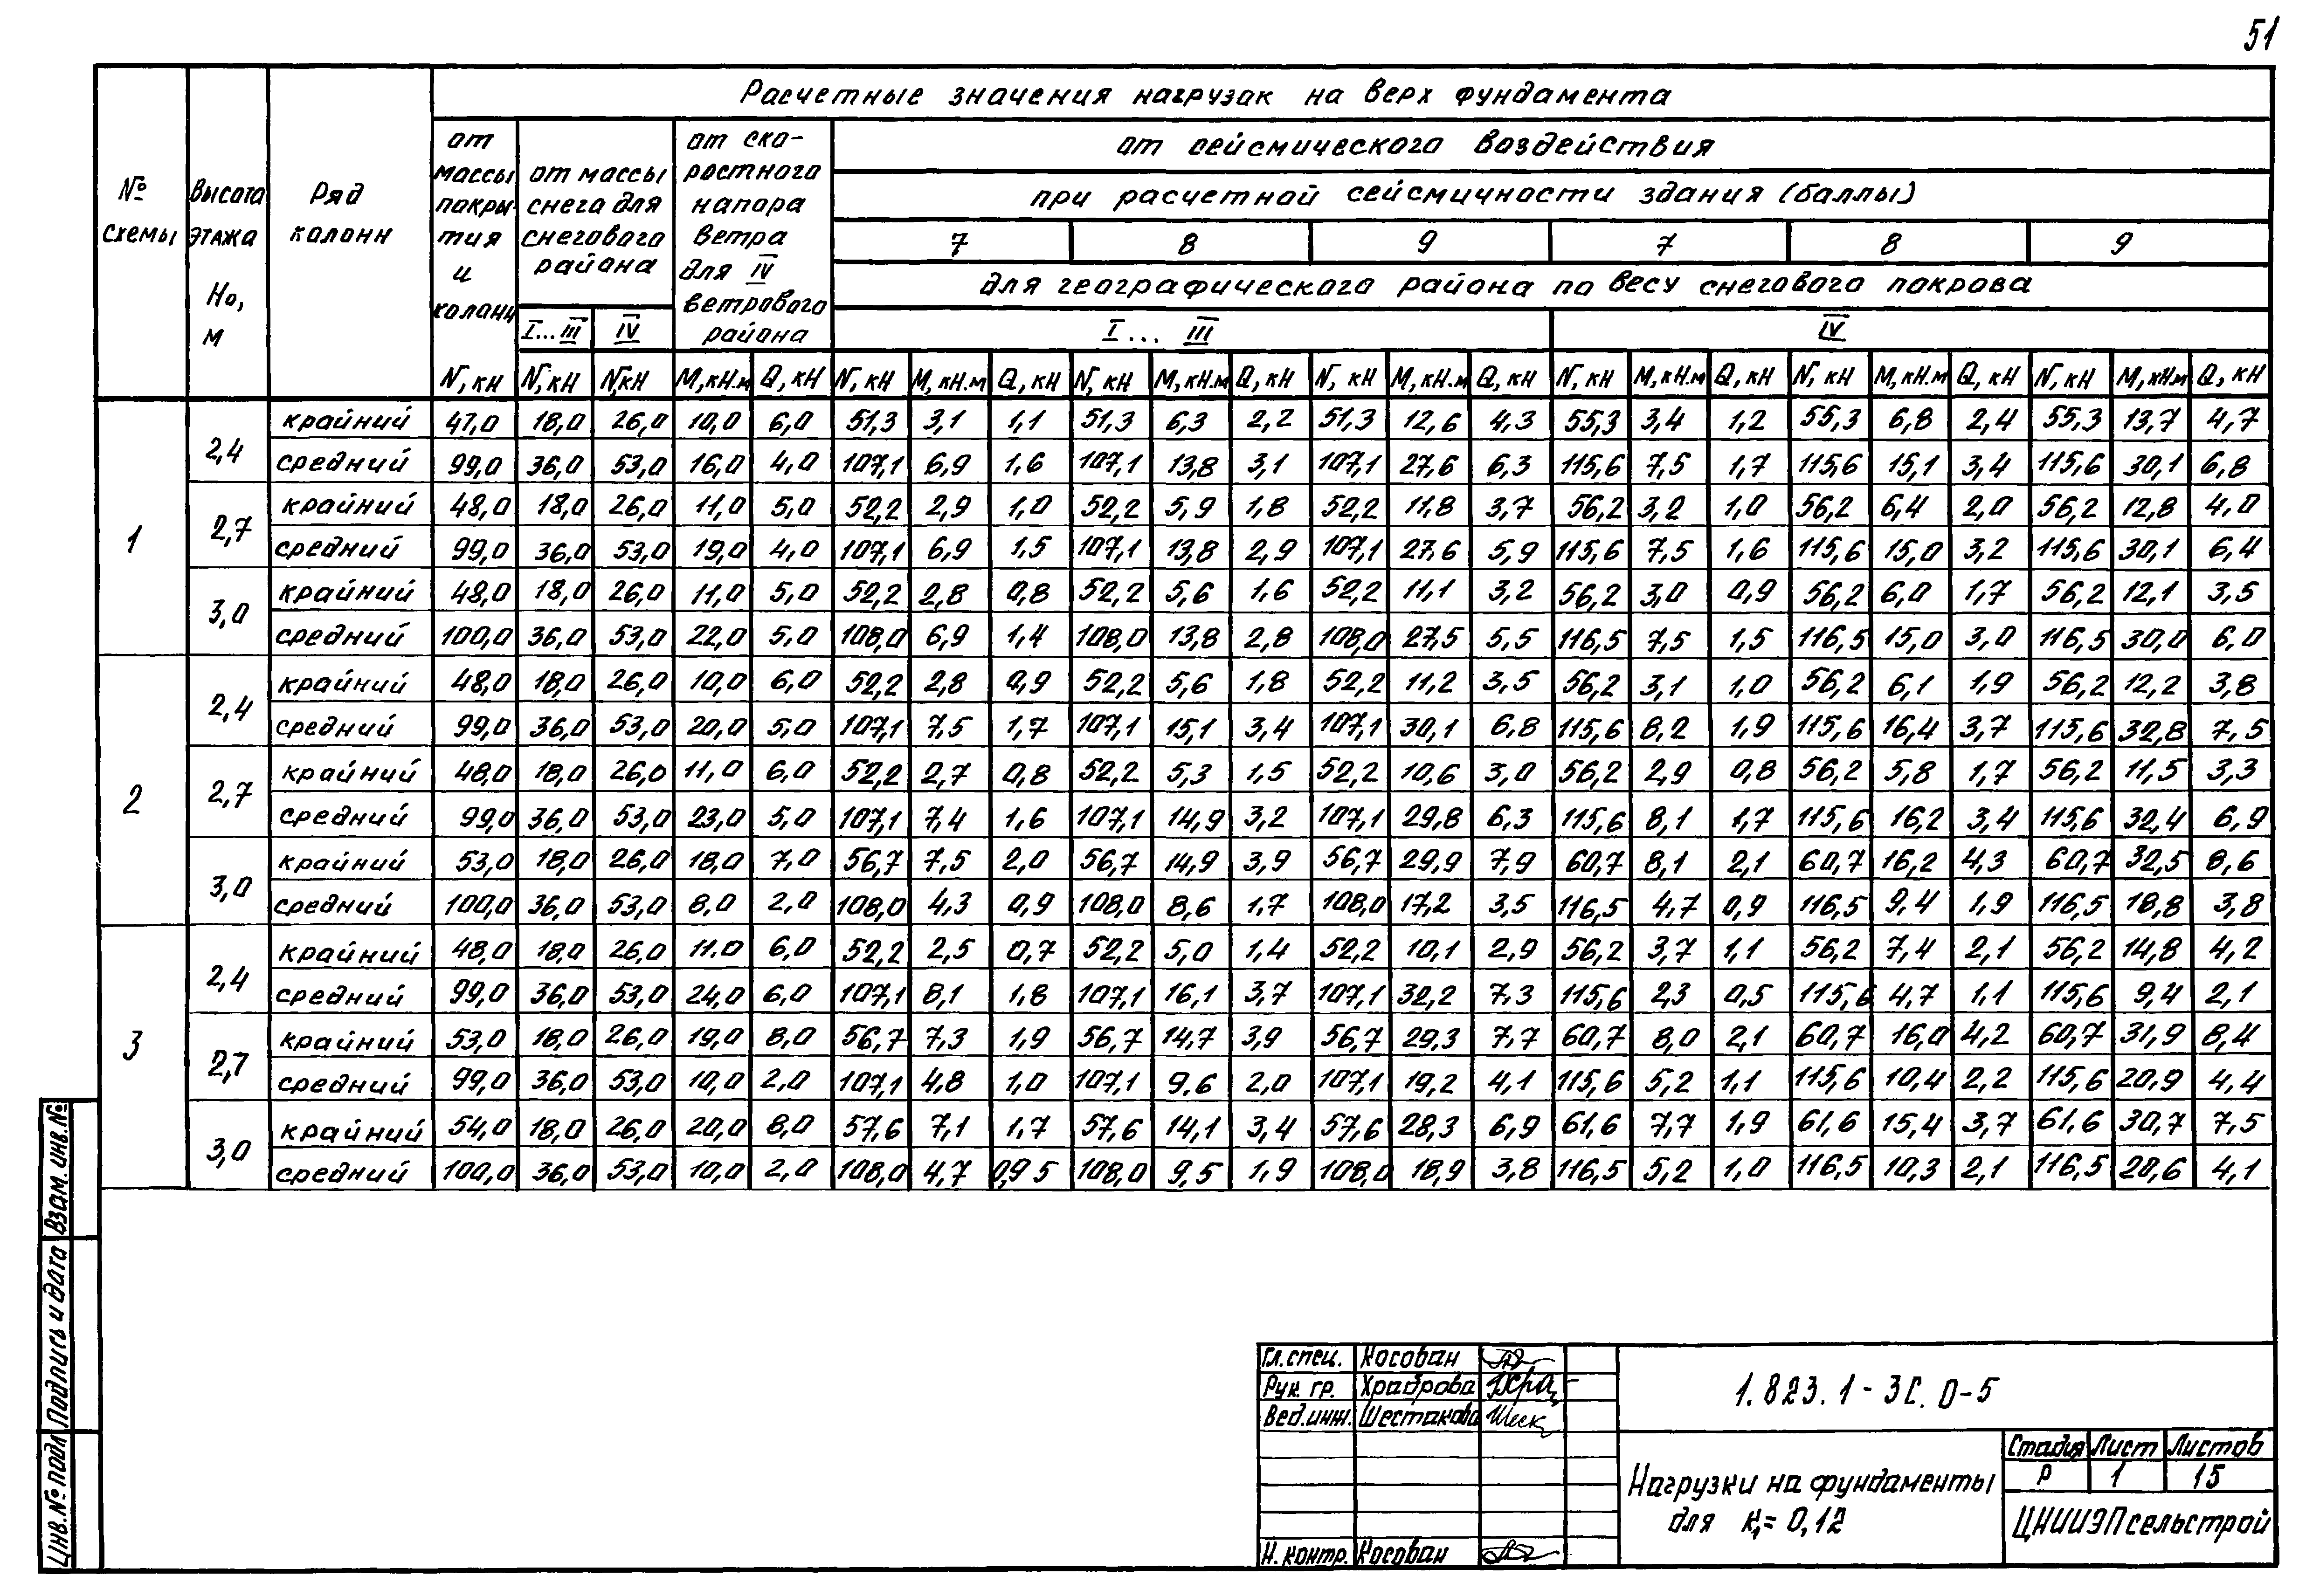 51
Расчетные значения нагрузок на верх фундамента
№ схемы
Высота этажа Но, м
Ряд колонн
от массы покрытия и колонн
от массы снега для снегового района
от скоростного напора ветра для IV ветрового района
от сейсмического воздействия
при расчетной сейсмичности здания (баллы)
7 8 9 7 8 9
для географического района по весу снегового покрова
I...III IV I...III IV
N, кН N, кН N, кН M, кН.м Q, кН N, кН M, кН.м Q, кН N, кН M, кН.м Q, кН N, кН M, кН.м Q, кН N, кН M, кН.м Q, кН N, кН M, кН.м Q, кН N, кН M, кН.м Q, кН
1 2,4 крайний 47,0 18,0 26,0 10,0 6,0 51,3 3,1 1,1 51,3 6,3 2,2 51,3 12,6 4,3 55,3 3,4 1,2 55,3 6,8 2,4 55,3 13,7 4,7
средний 99,0 36,0 53,0 16,0 4,0 107,1 6,9 1,6 107,1 13,8 3,1 107,1 27,6 6,3 115,6 7,5 1,7 115,6 15,1 3,4 115,6 30,1 6,8
2,7 крайний 48,0 18,0 26,0 11,0 5,0 52,2 2,9 1,0 52,2 5,9 1,8 52,2 11,8 3,7 56,2 3,2 1,0 56,2 6,4 2,0 56,2 12,8 4,0
средний 99,0 36,0 53,0 19,0 4,0 107,1 6,9 1,5 107,1 13,8 2,9 107,1 27,6 5,9 115,6 7,5 1,6 115,6 15,0 3,2 115,6 30,1 6,4
3,0 крайний 48,0 18,0 26,0 11,0 5,0 52,2 2,8 0,8 52,2 5,6 1,6 52,2 11,1 3,2 56,2 3,0 0,9 56,2 6,0 1,7 56,2 12,1 3,5
средний 100,0 36,0 53,0 22,0 5,0 108,0 6,9 1,4 108,0 13,8 2,8 108,0 27,5 5,5 116,5 7,5 1,5 116,5 15,0 3,0 116,5 30,0 6,0
2 2,4 крайний 48,0 18,0 26,0 10,0 6,0 52,2 2,8 0,9 52,2 5,6 1,8 52,2 11,2 3,5 56,2 3,1 1,0 56,2 6,1 1,9 56,2 12,2 3,8
средний 99,0 36,0 53,0 20,0 5,0 107,1 7,5 1,7 107,1 15,1 3,4 107,1 30,1 6,8 115,6 8,2 1,9 115,6 16,4 3,7 115,6 32,8 7,5
2,7 крайний 48,0 18,0 26,0 11,0 6,0 52,2 2,7 0,8 52,2 5,3 1,5 52,2 10,6 3,0 56,2 2,9 0,8 56,2 5,8 1,7 56,2 11,5 3,3
средний 99,0 36,0 53,0 23,0 5,0 107,1 7,4 1,6 107,1 14,9 3,2 107,1 29,8 6,3 115,6 8,1 1,7 115,6 16,2 3,4 115,6 32,4 6,9
3,0 крайний 53,0 18,0 26,0 18,0 7,0 56,7 7,5 2,0 56,7 14,9 3,9 56,7 29,9 7,9 60,7 8,1 2,1 60,7 16,2 4,3 60,7 32,5 8,6
средний 100,0 36,0 53,0 8,0 2,0 108,0 4,3 0,9 108,0 8,6 1,7 108,0 17,2 3,5 116,5 4,7 0,9 116,5 9,4 1,9 116,5 18,8 3,8
3 2,4 крайний 48,0 18,0 26,0 11.0 6,0 52,2 2,5 0,7 52,2 5,0 1,4 52,2 10,1 2,9 56,2 3,7 1,1 56,2 7,4 2,1 56,2 14,8 4,2
средний 99,0 36,0 53,0 24,0 6,0 107,1 8,1 1,8 107,1 16,1 3,7 107,1 32,2 7,3 115,6 2,3 0,5 115,6 4,7 1,1 115,6 9,4 2,1
2,7 крайний 53,0 18,0 26,0 19,0 8,0 56,7 7,3 1,9 56,7 14,7 3,9 56,7 29,3 7,7 60,7 8,0 2,1 60,7 16,0 4,2 60,7 31,9 8,4
средний 99,0 36,0 53,0 10,0 2,0 107,1 4,8 1,0 107,1 9,6 2,0 107,1 19,2 4,1 115,6 5,2 1,1 115,6 10,4 2,2 115,6 20,9 4,4
3,0 крайний 54,0 18,0 26,0 20,0 8,0 57,6 7,1 1,7 57,6 14,1 3,4 57,6 28,3 6,9 61,6 7,7 1,9 61,6 15,4 3,7 61,6 30,7 7,5
средний 100,0 36,0 53,0 10,0 2,0 108,0 4,7 0,95 108,0 9,5 1,9 108,0 18,9 3,8 116,5 5,2 1,0 116,5 10,3 2,1 116,5 20,6 4,1
Инв.№ подл Подпись и дата Взам. инв.№
Гл.спец. Косован
Рук. гр. Храброва
Вед.инж. Шестакова
Н. контр. Косован
1.823.1-3С.0-5
Нагрузки на фундаменты
для к₁= 0,12
Стадия Лист Листов
Р 1 15
ЦНИИЭПсельстрой